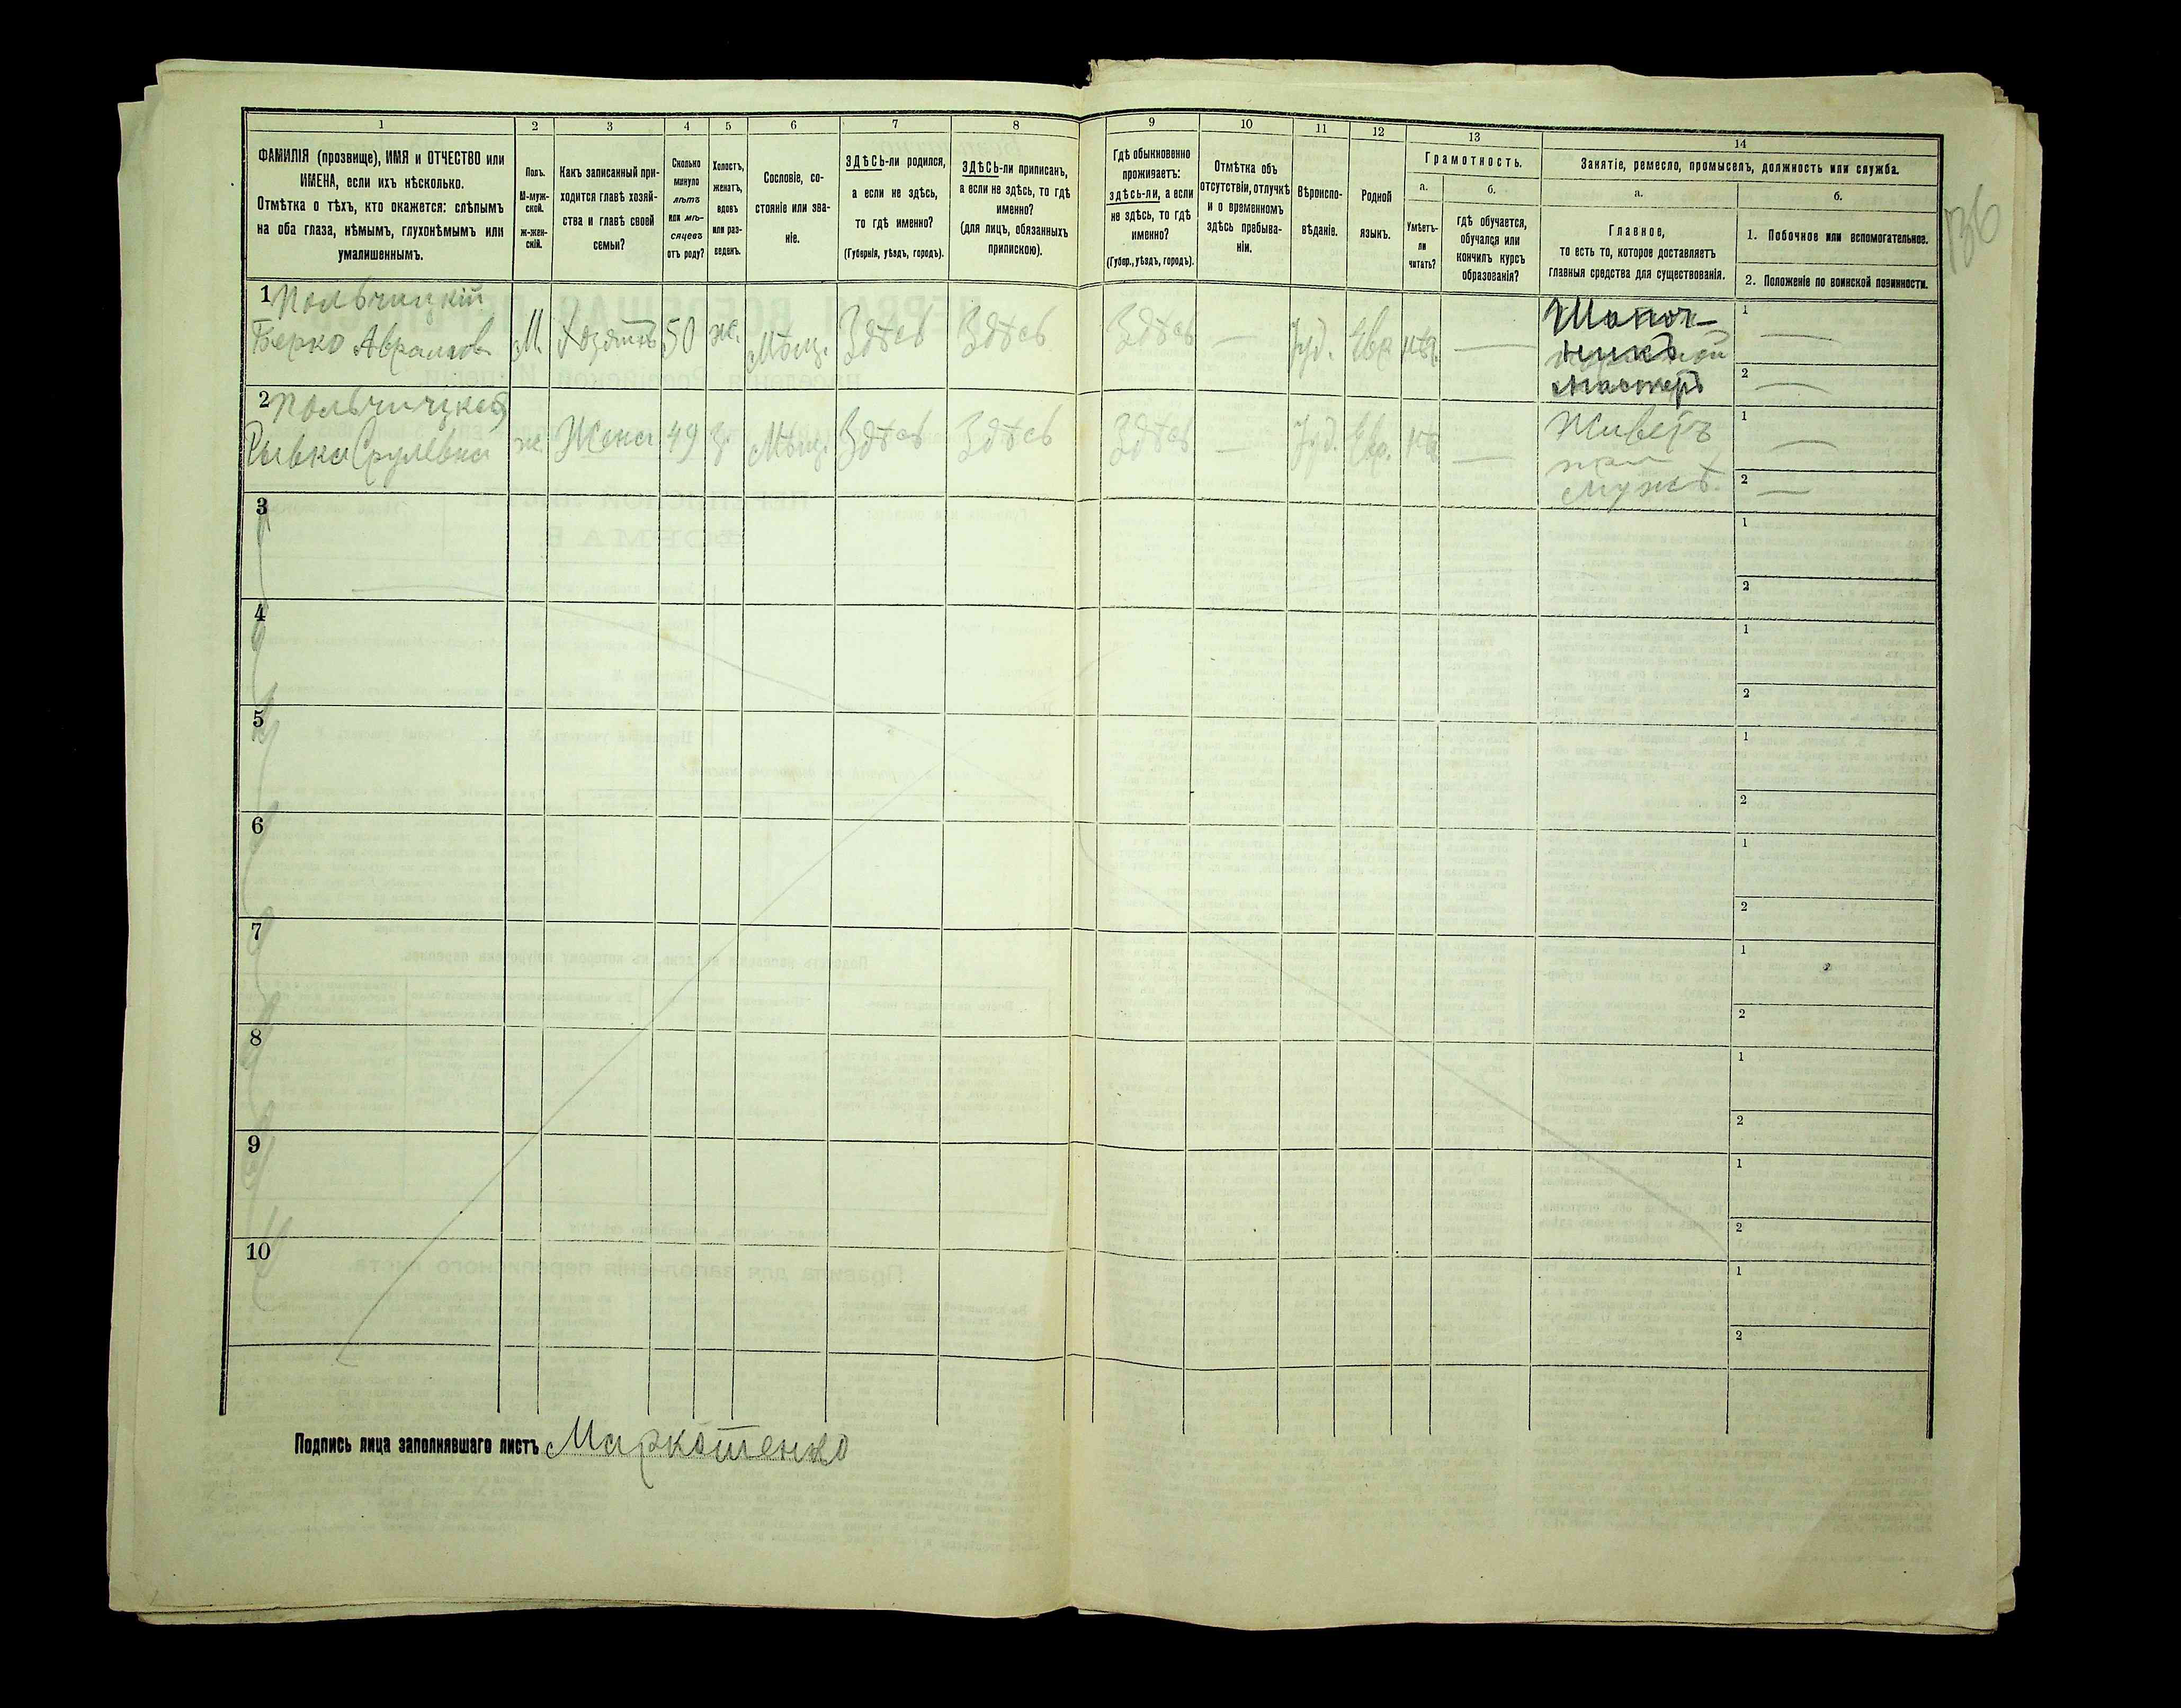 136
1 2 3 4 5 6 7 8 9 10 11 12 13 14
ФАМИЛІЯ (прозвище), ИМЯ и ОТЧЕСТВО или
ИМЕНА, если ихъ нѣсколько.
Отмѣтка о тѣхъ, кто окажется: слѣпымъ
на оба глаза, нѣмымъ, глухонѣмымъ или
умалишеннымъ.
Полъ.
М-муж-
ской.
Ж-жен-
скій.
Какъ записанный при-
ходится главѣ хозяй-
ства и главѣ своей
семьи?
Сколько
минуло
лѣтъ
или мѣ-
сяцевъ
отъ роду?
Холостъ,
женатъ,
вдовъ
или раз-
веденъ.
Сословіе, со-
стояніе или зва-
ніе.
ЗДѢСЬ-ли родился,
а если не здѣсь,
то гдѣ именно?
(Губернія, уѣздъ, городъ).
ЗДѢСЬ-ли приписанъ,
а если не здѣсь, то гдѣ
именно?
(для лицъ, обязанныхъ
припискою).
Гдѣ обыкновенно
проживаетъ:
здѣсь-ли, а если
не здѣсь, то гдѣ
именно?
(Губер., уѣздъ, городъ).
Отмѣтка объ
отсутствіи, отлучкѣ
и о временномъ
здѣсь пребыва-
ніи.
Вѣроиспо-
вѣданіе.
Родной
языкъ.
Грамотность.
а.
Умѣетъ-
ли
читать?
б.
гдѣ обучается,
обучался или
кончилъ курсъ
образованія?
Занятіе, ремесло, промыселъ, должность или служба.
а.
Главное,
то есть то, которое доставляетъ
главныя средства для существованія.
б.
1. Побочное или вспомогательное.
2. Положеніе по воинской повинности.
1 Польчицкій
Берко Аврамов М. Хозяинъ 50 ж. Мѣщ. Здѣсь Здѣсь Здѣсь — Іуд. Евр. — Шапоч-
никъ
мастеръ
1 —
2 —
2 Польчицкая
Рывка Срулевна ж. Жена 49 з. Мѣщ. Здѣсь Здѣсь Здѣсь — Іуд. Евр. — Живетъ
при
мужѣ.
1 —
2 —
3
1
2
4
1
2
5
1
2
6
1
2
7
1
2
8
1
2
9
1
2
10
1
2
Подпись лица заполнявшаго листъ Маркотенко